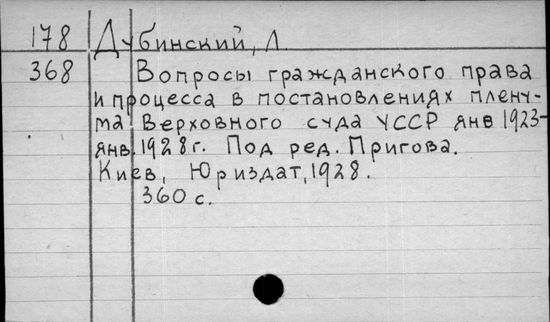 178 Дубинский, Л.
368 Вопросы гражданского права
и процесса в постановлениях плену-
ма Верховного суда УССР янв 1923-
янв. 1928 г. Под ред. Пригова.
Киев, Юриздат, 1928.
360 с.